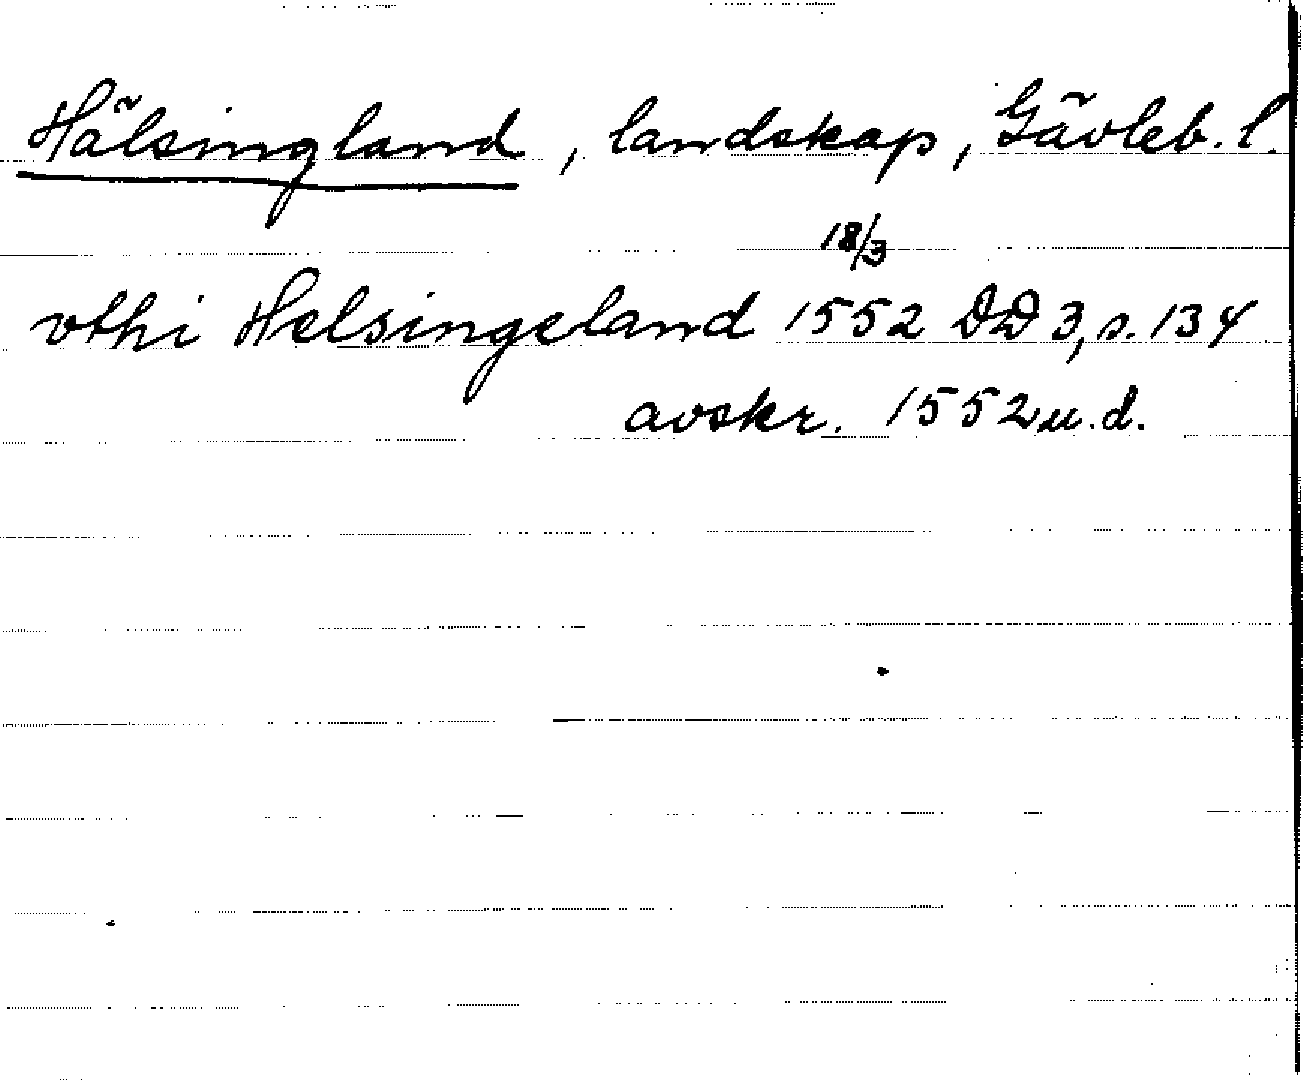 Hälsingland, landskap, Gävleb. l.
18/3
vthi Helsingeland 1552 DD 3, s. 134
avskr. 1552 u. d.